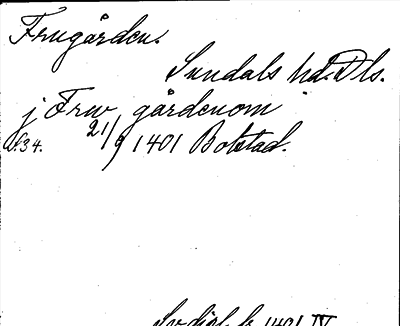 Frugården.
Sundals hd. Dls.
j Frw gårdenom
21/9 1401 Bolstad.
1401 IV